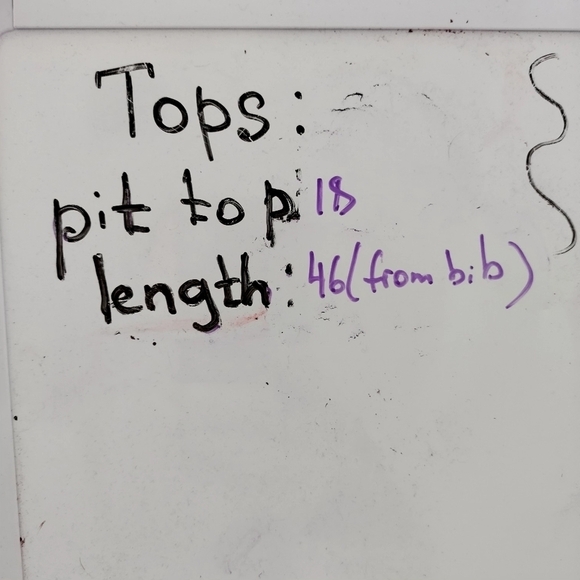 Tops:
pit to p: 18
length: 46 (from bib)